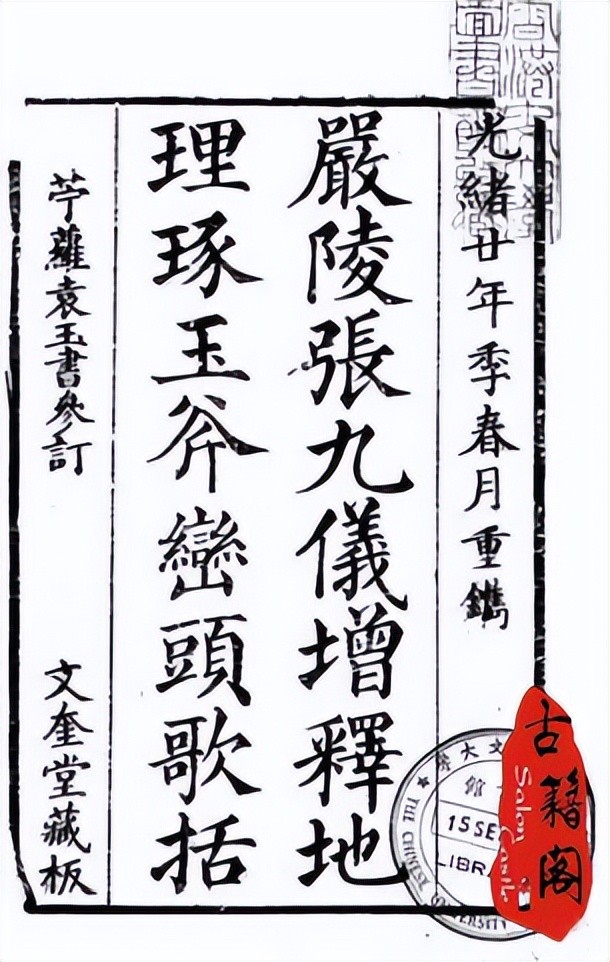 光緒廿年季春月重鐫
嚴陵張九儀增釋地
理琢玉斧巒頭歌括
苧蘿袁玉書參訂
文奎堂藏板
古籍閣
文大
館
15 SE
LIBRA
THE CHINESE UNIVERSITY